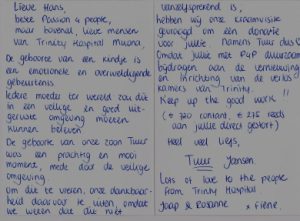 Lieve Hans,
beste Passion 4 people,
maar bovenal, lieve mensen
van Trinity Hospital Muona,
De geboorte van een kindje is
een emotionele en overweldigende
gebeurtenis
Iedere moeder ter wereld zou dit
in een veilige en goed uit-
geruste omgeving moeten
kunnen beleven
De geboorte van onze zoon Tuur
was een prachtig en mooi
moment, mede door de veilige
omgeving.
Om dit te vieren, onze dankbaar-
heid daarvoor te uiten, omdat
we weten dat dit niet
vanzelfsprekend is,
hebben wij onze kraamvisite
gevraagd om een donatie
voor jullie. Namens Tuur dus
Omdat jullie met P4P duurzaam
bijdragen aan de vernieuwing
en inrichting van de verlos-
kamers van Trinity.
Keep up the good work !!
(€ 700 contant, € 275 reeds
aan jullie direct gestort)
Heel veel liefs,
Tuur Jansen
Lots of love to the people
from Trinity Hospital
Joop & Rosanne &